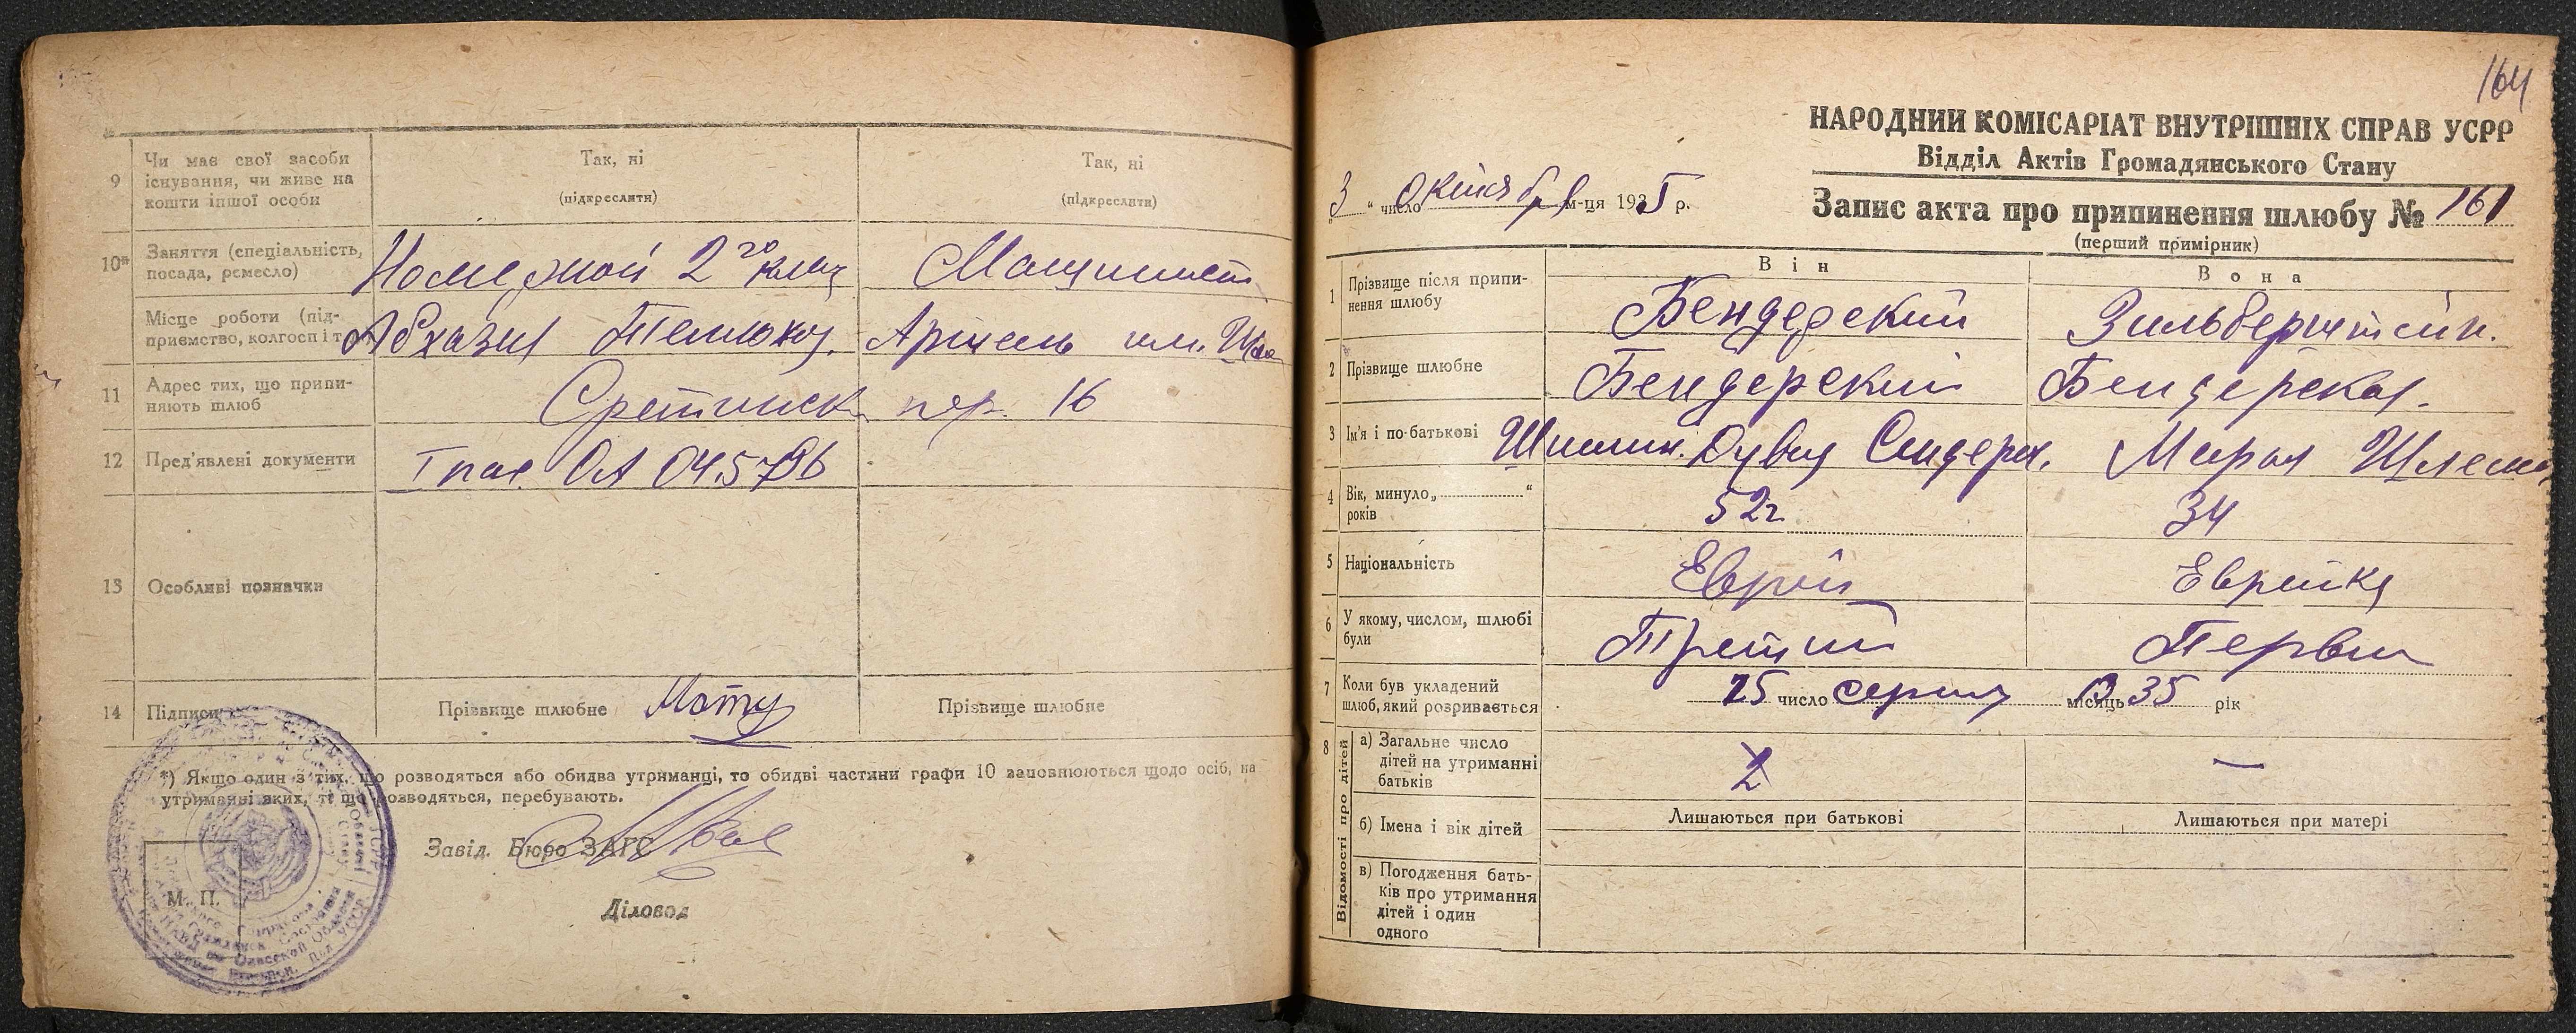 9 Чи має свої засоби існування, чи живе на кошти іншої особи
Так, ні
(підкреслити)
Так, ні
(підкреслити)
10* Заняття (спеціальність, посада, ремесло)
2го
Місце роботи (підприємство, колгосп і т
Абхазия
Артель им.
11 Адрес тих, що припиняють шлюб
Сретинск пер. 16
12 Пред'явлені документи
ОА 045796
13 Особливі позначки
14 Підписи
Прізвище шлюбне
Прізвище шлюбне
*) Якщо один з тих, що розводяться або обидва утриманці, то обидві частини графи 10 заповнюються щодо осіб, на
утриманні яких, ті що розводяться, перебувають.
Завід. Бюро ЗАГС
М. П.
Діловод
164
НАРОДНИЙ КОМІСАРІАТ ВНУТРІШНІХ СПРАВ УСРР
Відділ Актів Громадянського Стану
3 " число октября м-ця 1935 р.
Запис акта про припинення шлюбу № 161
(перший примірник)
Він
Вона
1 Прізвище після припинення шлюбу
Бендерский
Зильберштейн.
2 Прізвище шлюбне
Бендерский
Бендерская.
3 Ім'я і по-батькові
Марья
4 Вік, минуло „ “ років
52г
34
5 Національність
Еврей
Еврейка
6 У якому, числом, шлюбі були
Третий
Первы
7 Коли був укладений шлюб, який розривається
25 число серпня місяць 35 рік
8 Відомості про дітей
а) Загальне число дітей на утриманні батьків
2
—
б) Імена і вік дітей
Лишаються при батькові
Лишаються при матері
в) Погодження батьків про утримання дітей і один одного